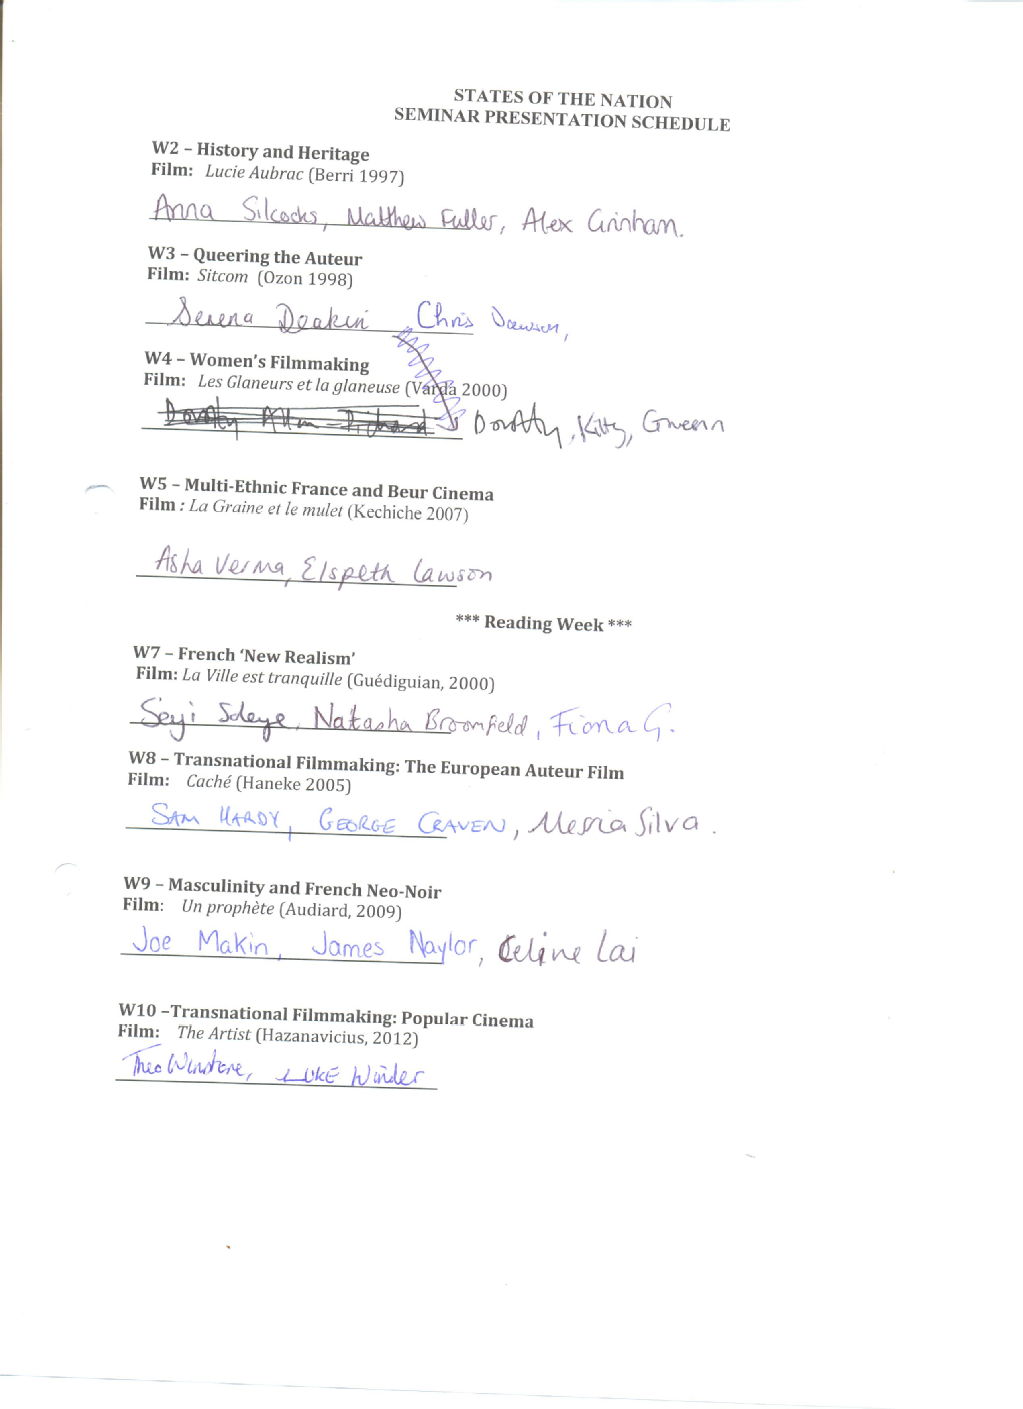 STATES OF THE NATION
SEMINAR PRESENTATION SCHEDULE
W2 – History and Heritage
Film: Lucie Aubrac (Berri 1997)
Anna Silcocks, Matthew Fuller, Alex Grinham.
W3 – Queering the Auteur
Film: Sitcom (Ozon 1998)
Serena Deakin Chris Dawson,
W4 – Women's Filmmaking
Film: Les Glaneurs et la glaneuse (Varda 2000)
Dorothy, Kitty, Gwenn
W5 – Multi-Ethnic France and Beur Cinema
Film : La Graine et le mulet (Kechiche 2007)
Asha Verma, Elspeth Lawson
*** Reading Week ***
W7 – French ‘New Realism’
Film: La Ville est tranquille (Guédiguian, 2000)
Seyi Natasha Broomfield, Fiona G.
W8 – Transnational Filmmaking: The European Auteur Film
Film: Caché (Haneke 2005)
SAM HARDY, GEORGE CRAVEN, Silva.
W9 – Masculinity and French Neo-Noir
Film: Un prophète (Audiard, 2009)
Joe Makin, James Naylor, Celine Lai
W10 –Transnational Filmmaking: Popular Cinema
Film: The Artist (Hazanavicius, 2012)
Theo LUKE Winder